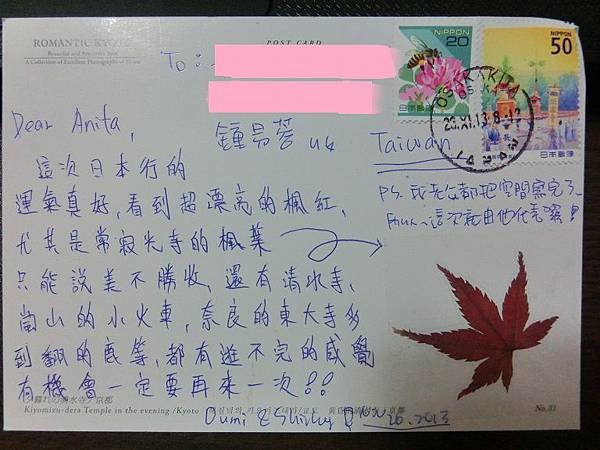 ROMANTIC KYOTO
Beautiful and Attractive Spot
A Collection of Excellent Photographs of Kyoto
POST CARD
To:
NIPPON
20
日本郵便
NIPPON
50
日本郵便
OSAKAKITA
OSAKA
JAPAN
Dear Anita,
Taiwan
這次日本行的
運氣真好,看到超漂亮的楓紅,
尤其是常寂光寺的楓葉
只能說美不勝收,還有清水寺、
嵐山的小火車,奈良的東大寺多
到翻的鹿等,都有逛不完的感覺
有機會一定要再來一次!!
PS. 我老公都把空間寫完了
這次就由他代表囉!
夕霽れの清水寺/京都
Kiyomizu-dera Temple in the evening /Kyoto
No.31
Nov 26. 2013